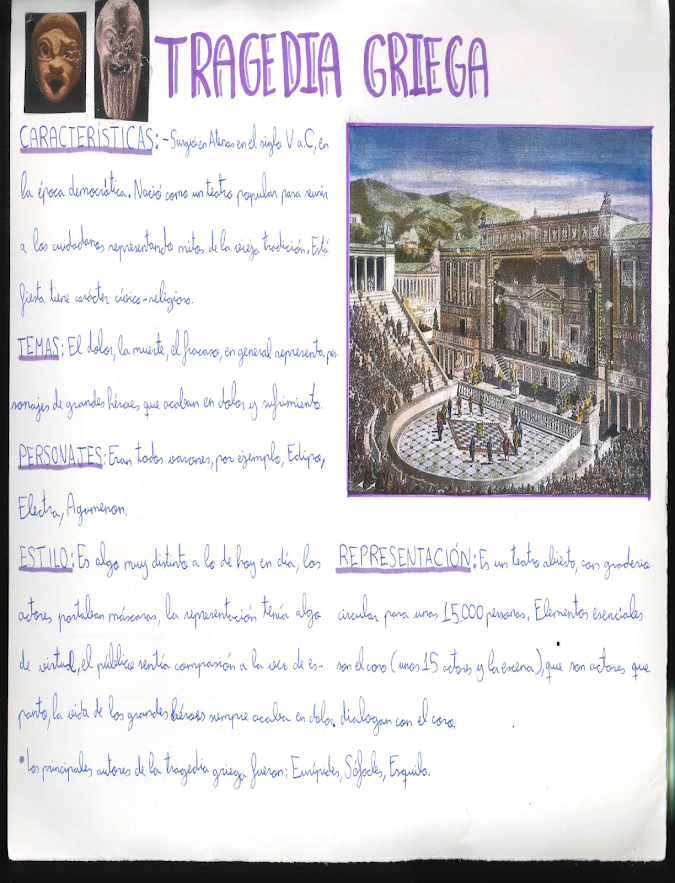 TRAGEDIA GRIEGA
CARACTERÍSTICAS: - Surgió en Atenas en el siglo V a.C, en
la época democrática. Nació como un teatro popular para reunir
a los ciudadanos representando mitos de la vieja tradición. Está
fiesta tiene carácter cívico-religioso.
TEMAS: El dolor, la muerte, el fracaso, en general representa per
sonajes de grandes héroes que acaban en dolor y sufrimiento.
PERSONAJES: Eran todos varones, por ejemplo, Edipo,
Electra, Agamenon.
ESTILO: Es algo muy distinto a lo de hoy en día, los
actores portaban máscaras, la representación tenía algo
de virtual, el público sentía compasión a la vez de es-
panto, la vida de los grandes héroes siempre acaba en dolor.
REPRESENTACIÓN: Es un teatro abierto, con graderia
circular para unas 15.000 personas. Elementos esenciales
son el coro (unos 15 actores y la escena), que son actores que
dialogan con el coro.
• Los principales autores de la tragedia griega fueron: Eurípides, Sófocles, Esquilo.